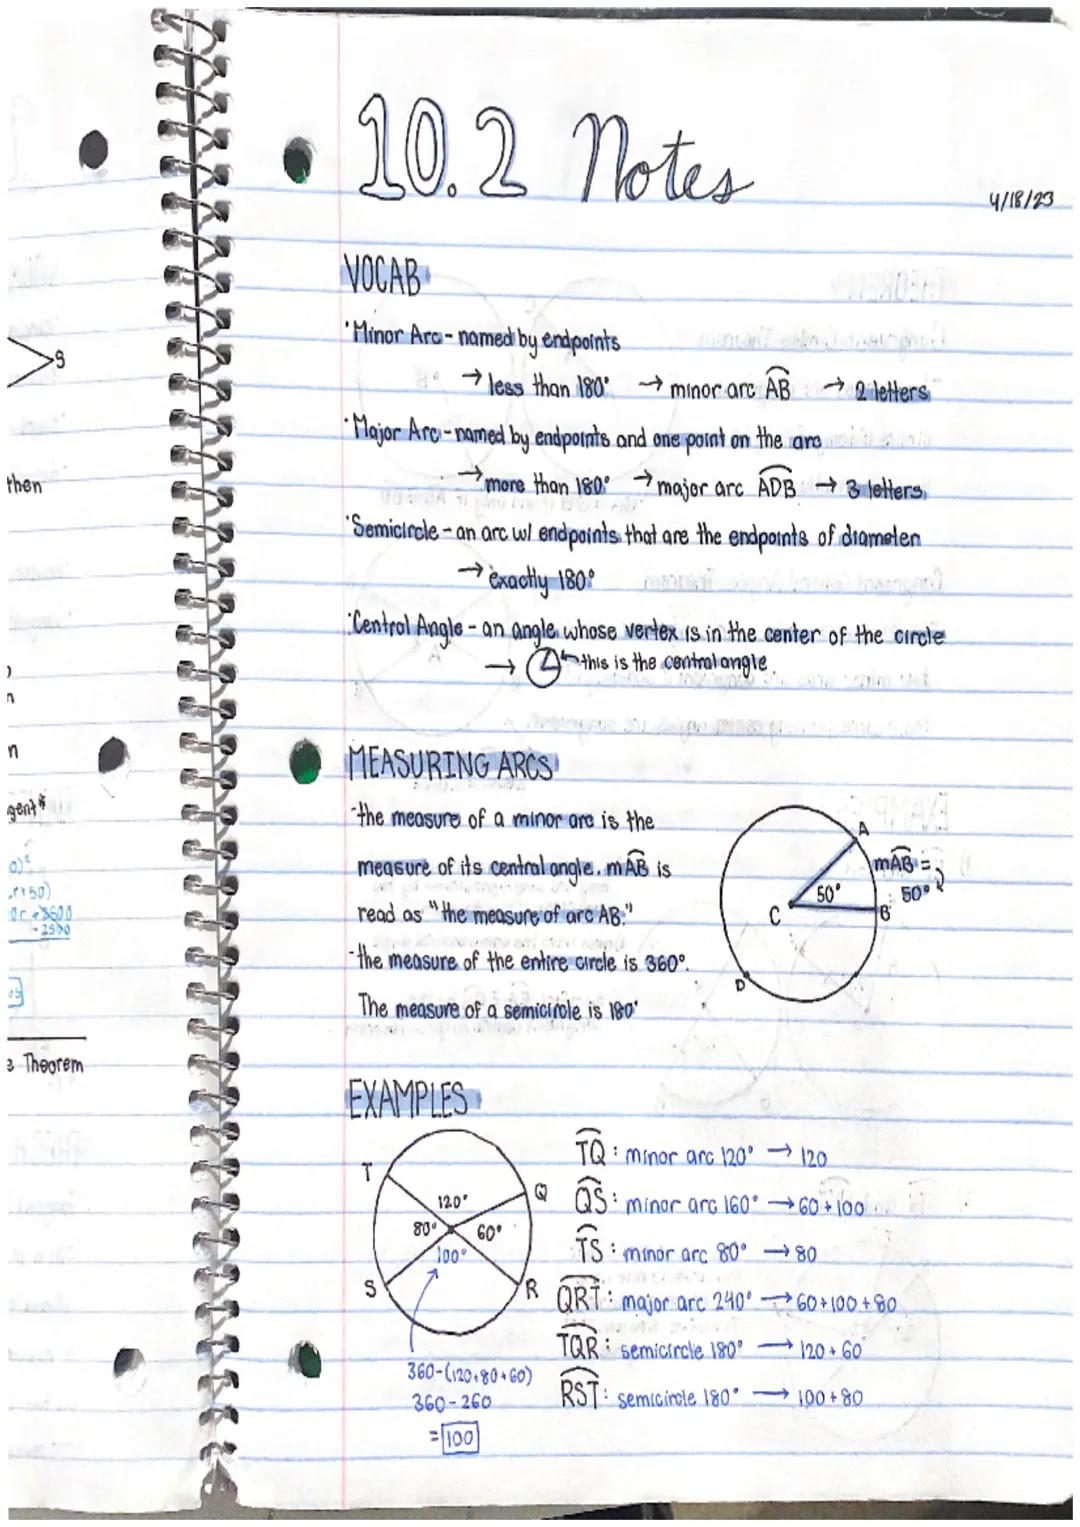 10.2 Notes
4/18/23
VOCAB
·Minor Arc - named by endpoints
→ less than 180° → minor arc AB → 2 letters
·Major Arc - named by endpoints and one point on the arc
→ more than 180° → major arc ADB → 3 letters
·Semicircle - an arc w/ endpoints that are the endpoints of diameter
→ exactly 180°
·Central Angle - an angle whose vertex is in the center of the circle
→ this is the central angle
MEASURING ARCS
-the measure of a minor arc is the
measure of its central angle. mAB is
read as "the measure of arc AB."
-the measure of the entire circle is 360°.
The measure of a semicircle is 180°
A
mAB =
50°
50°
C
B
D
EXAMPLES
T
Q
120°
80°
60°
100°
S
R
360-(120+80+60)
360-260
=100
TQ: minor arc 120° → 120
QS: minor arc 160° → 60+100
TS: minor arc 80° → 80
QRT: major arc 240° → 60+100+80
TQR: semicircle 180° → 120+60
RST: semicircle 180° → 100+80
S
then
n
gent*
+3600
-2500
Theorem